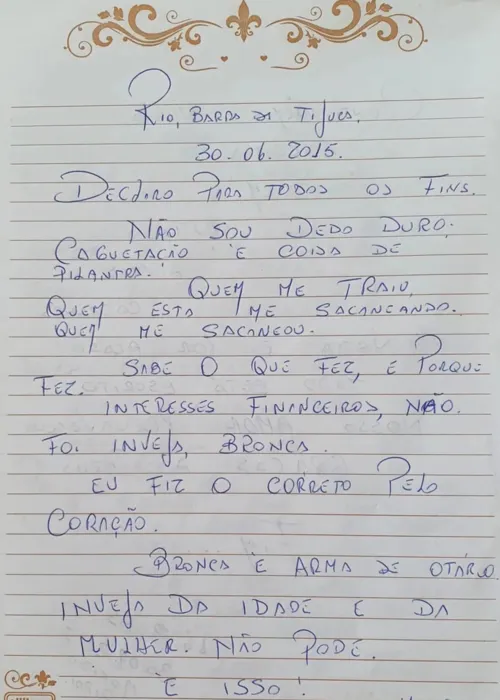 Rio, BARRA DA TIJUCA,
30.06.2015.
DECLARO PARA TODOS OS FINS.
NÃO SOU DEDO DURO.
CAGUETAÇÃO É COISA DE
PILANTRA.
QUEM ME TRAIU,
QUEM ESTA ME SACANEANDO.
QUEM ME SACANEOU.
SABE O QUE FEZ, E PORQUE
FEZ.
INTERESSES FINANCEIROS, NÃO.
FOI INVEJA, BRONCA.
EU FIZ O CORRETO PELO
CORAÇÃO.
BRONCA É ARMA DE OTÁRIO.
INVEJA DA IDADE E DA
MULHER. NÃO PODE.
É ISSO!